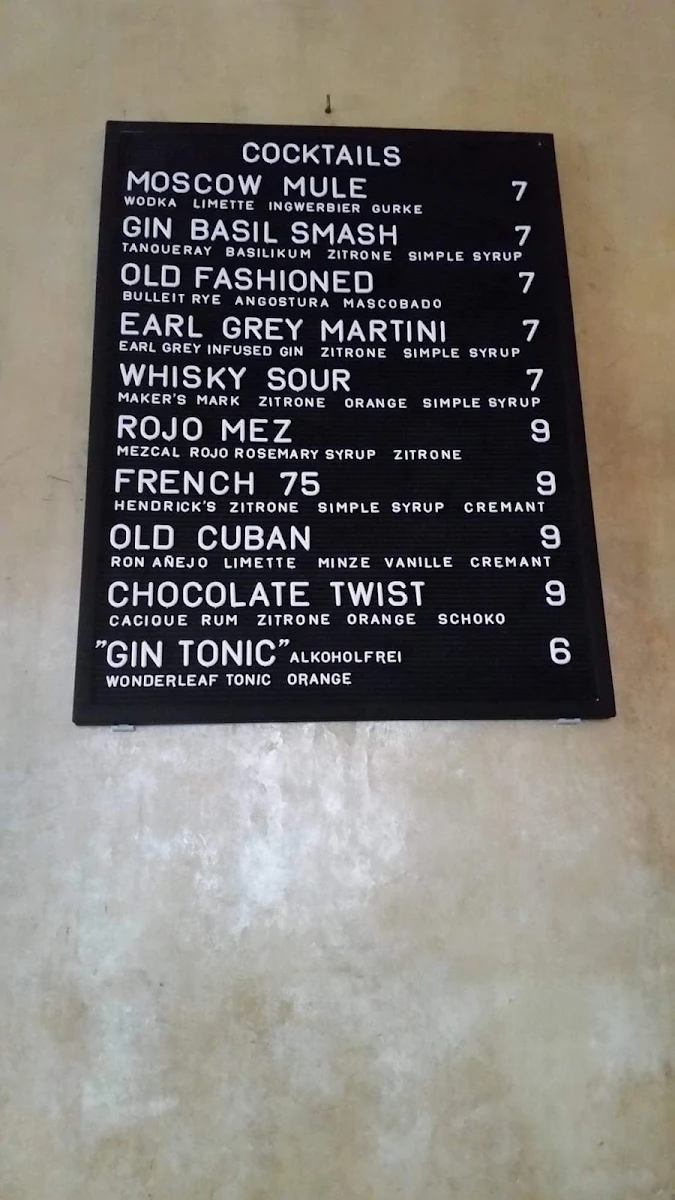 COCKTAILS
MOSCOW MULE 7
WODKA LIMETTE INGWERBIER GURKE
GIN BASIL SMASH 7
TANQUERAY BASILIKUM ZITRONE SIMPLE SYRUP
OLD FASHIONED 7
BULLEIT RYE ANGOSTURA MASCOBADO
EARL GREY MARTINI 7
EARL GREY INFUSED GIN ZITRONE SIMPLE SYRUP
WHISKY SOUR 7
MAKER'S MARK ZITRONE ORANGE SIMPLE SYRUP
ROJO MEZ 9
MEZCAL ROJO ROSEMARY SYRUP ZITRONE
FRENCH 75 9
HENDRICK'S ZITRONE SIMPLE SYRUP CREMANT
OLD CUBAN 9
RON AÑEJO LIMETTE MINZE VANILLE CREMANT
CHOCOLATE TWIST 9
CACIQUE RUM ZITRONE ORANGE SCHOKO
"GIN TONIC" ALKOHOLFREI 6
WONDERLEAF TONIC ORANGE